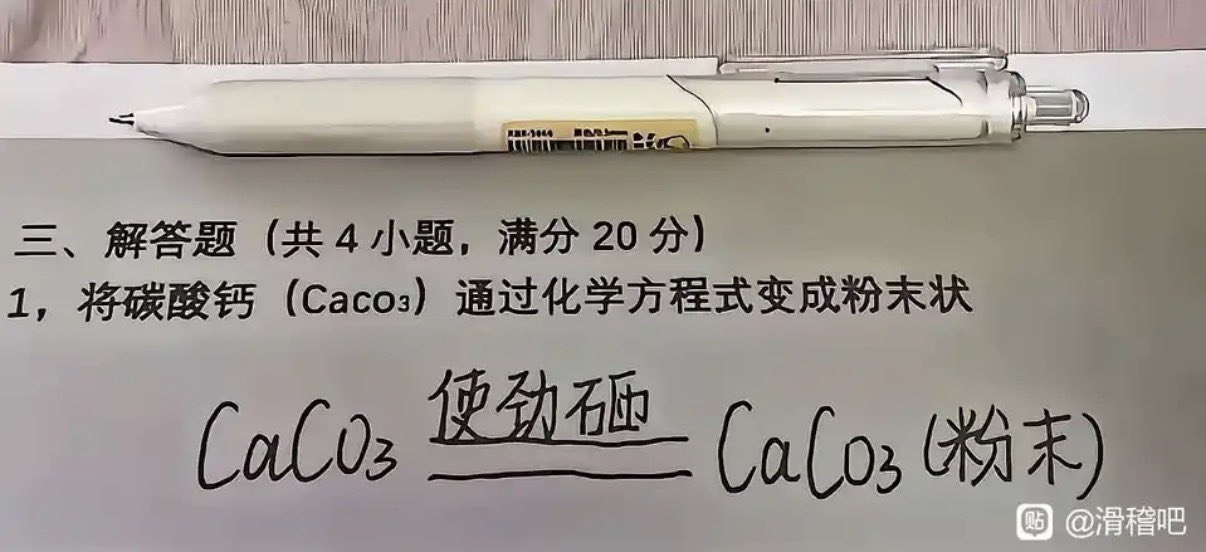 三、解答题（共 4 小题，满分 20 分）
1，将碳酸钙（Caco₃）通过化学方程式变成粉末状
使劲砸
CaCO₃ ══ CaCO₃ (粉末)
贴 @滑稽吧